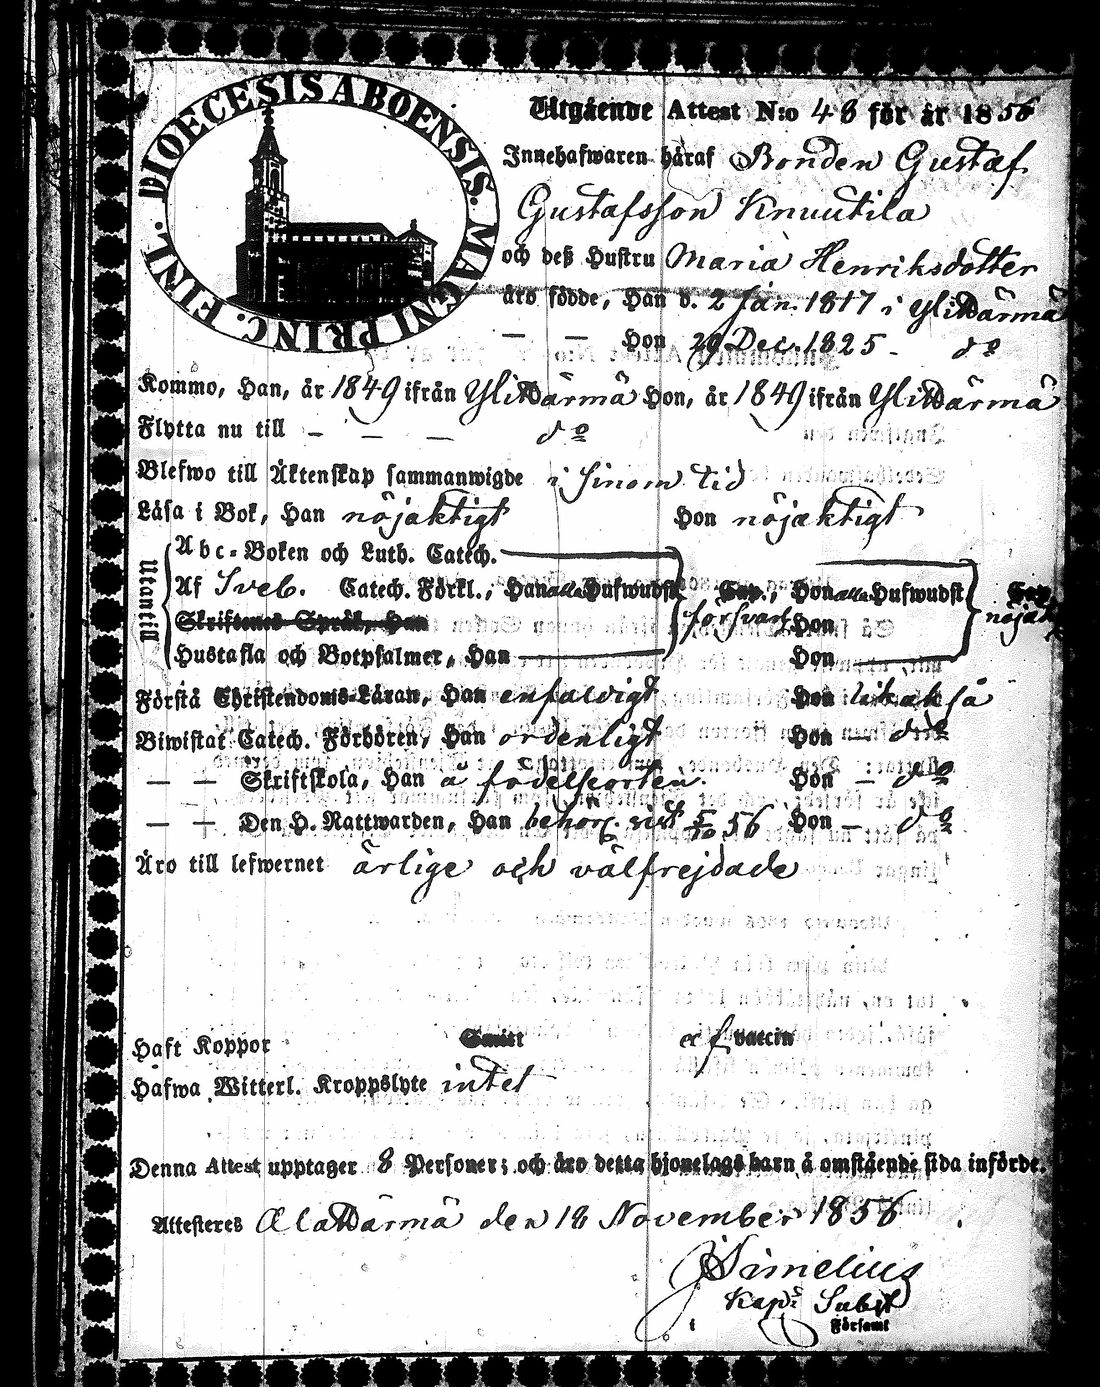 DIOECESIS ABOENSIS. MAGNI PRINC. FINL.
Utgående Attest N:o 48 för år 1856
Innehafwaren häraf Bonden Gustaf
Gustafsson Knuutila
och deß Hustru Maria Henriksdotter
äro födde, Han d. 2 Jan. 1817 i YliHärmä
— — Hon 29 Dec. 1825 - do
Kommo, Han, år 1849 ifrån YliHärmä Hon, år 1849 ifrån YliHärmä
Flytta nu till — — — do
Blefwo till Äktenskap sammanwigde i sinom tid
Läsa i Bok, Han nöjaktigt Hon nöjaktigt
Utantill
Abc-Boken och Luth. Catech.
Af Sveb. Catech. Förkl., Han alla Hufwudst. Cap., Hon alla Hufwudst. Cap.
Skriftenes Språk, Han försvarl. Hon nöjakt.
Hustafla och Botpsalmer, Han Hon
Förstå Christendoms-Läran, Han enfaldigt Hon likaså
Biwistat Catech. Förhören, Han ordenligt Hon — do
— — Skriftskola, Han å födelseorten. Hon — do
— — Den H. Nattwarden, Han behör. sist 5/10 56 Hon — do
Äro till lefwernet ärlige och välfrejdade
Haft Koppor Smitt af vaccin
Hafwa Witterl. Kroppslyte intet
Denna Attest upptager 8 Personer; och äro detta hjonelags barn å omstående sida införde.
Attesteres AlaHärmä den 18 November 1856
Simelius
Kap. Subst
i Församl